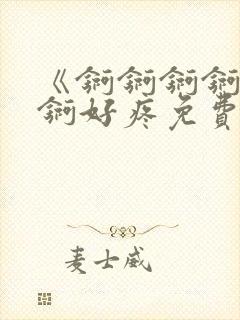 《锕锕锕锕
锕好疼免費
麦士威